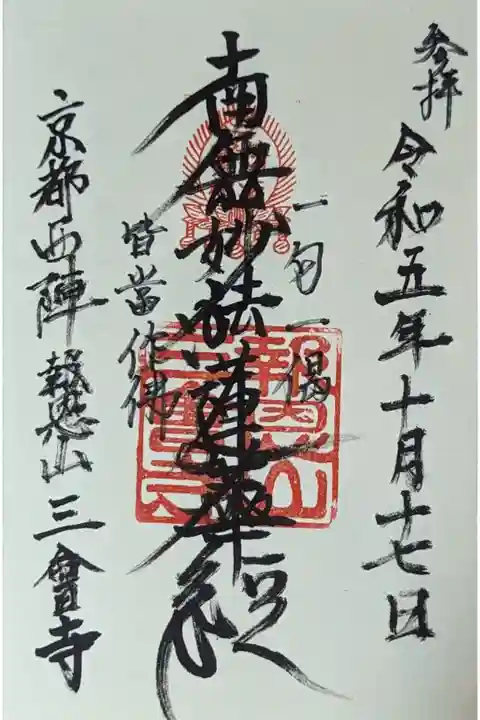 参拝
令和五年十月十七日
一句一偈
南無妙法蓮華経
皆當作佛
京都西陣報恩山三會寺
報恩山
三會寺